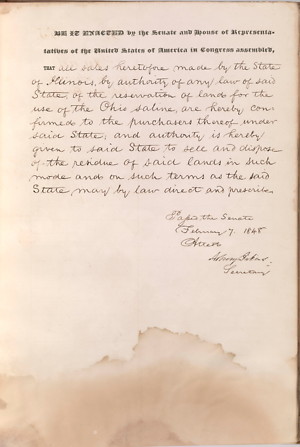 BE IT ENACTED by the Senate and House of Representa-
tatives of the United States of America in Congress assembled,
THAT all sales heretofore made by the State
of Illinois, by authority of any law of said
State, of the reservation of lands for the
use of the Ohio saline, are hereby con-
firmed to the purchasers thereof under
said State; and authority is hereby
given to said State to sell and dispose
of the residue of said lands in such
mode and on such terms as the said
State may by law direct and prescribe.
Passed the Senate
February 7. 1848
Attest
Asbury Dickins
Secretary